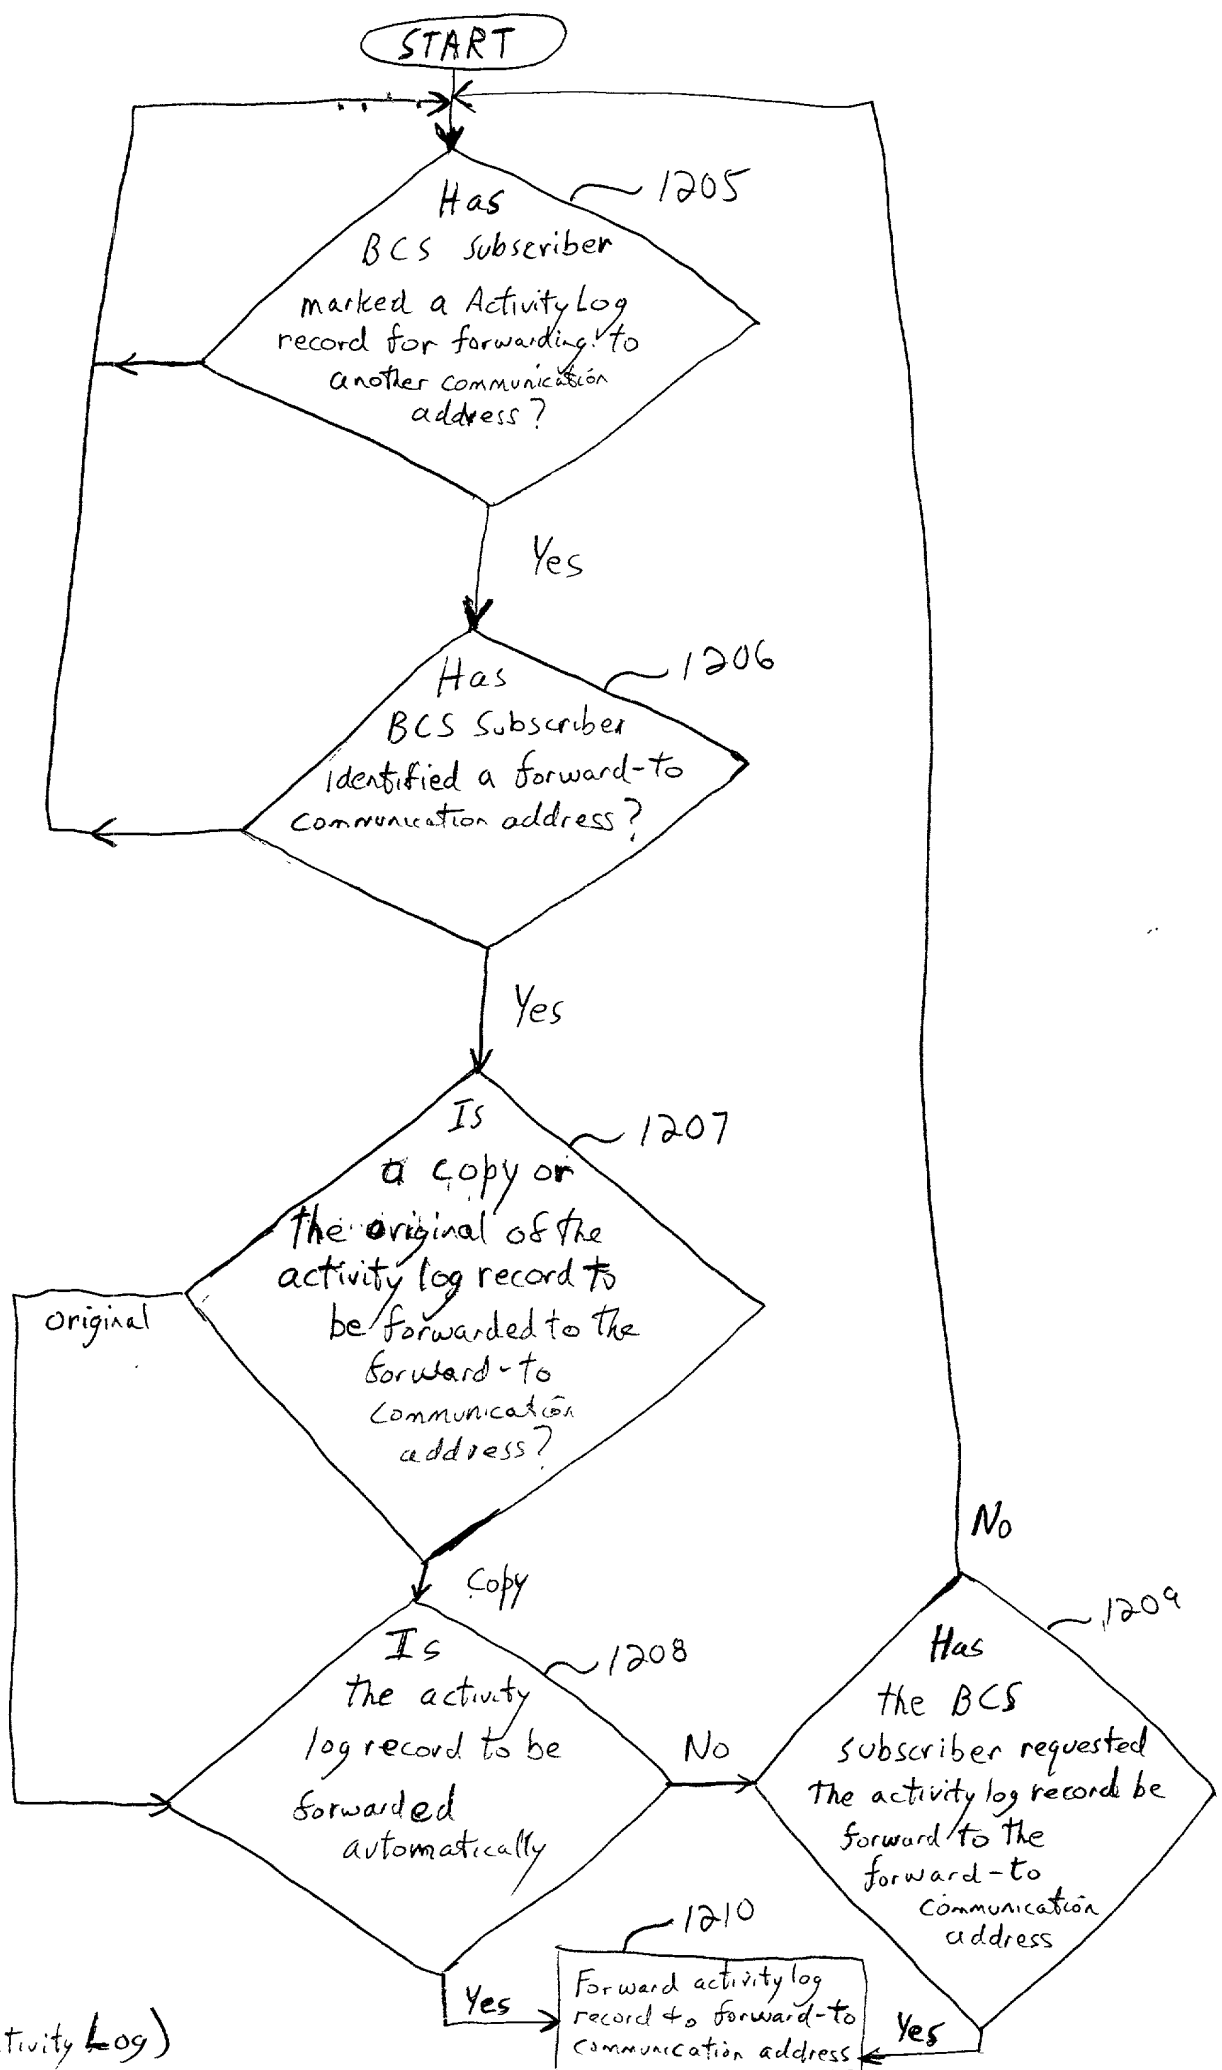 START
1205
Has
BCS Subscriber
marked a Activity Log
record for forwarding to
another communication
address?
Yes
1206
Has
BCS Subscriber
identified a forward-to
communication address?
Yes
1207
Is
a copy or
the original of the
activity log record to
be forwarded to the
forward-to
communication
address?
original
Copy
No
1208
Is
the activity
log record to be
forwarded
automatically
No
1209
Has
the BCS
subscriber requested
the activity log record be
forward to the
forward-to
communication
address
1210
Yes
Forward activity log
record to forward-to
communication address
Yes
tivity Log)